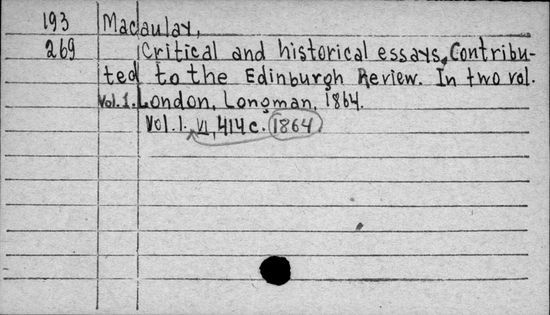 193 Macaulay,
269 Critical and historical essays, Contribu-
ted to the Edinburgh Review. In two vol.
Vol.1. London, Longman, 1864.
Vol.1. VI, 414 c. 1864